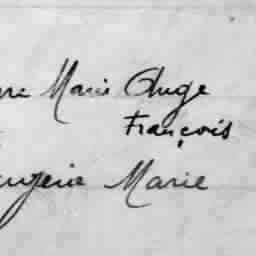 Marie Ange
François
Eugenie Marie